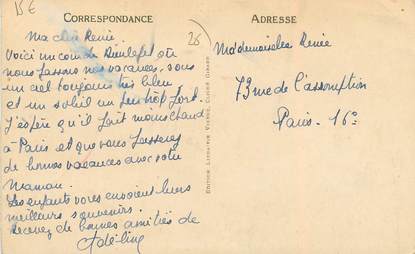 15€
CORRESPONDANCE
26
Ma chère Renée.
Voici un coin de Rieulefit où
nous passons nos vacances, sous
un ciel toujours très bleu
et un soleil un peu trop fort.
J'espère qu'il fait moins chaud
à Paris et que vous passerez
de bonnes vacances avec votre
Maman.
Les enfants vous envoient leurs
meilleurs souvenirs.
Recevez de bonnes amitiés de
Adeline
ADRESSE
Mademoiselle Renée
73 rue de l'assomption
Paris - 16e